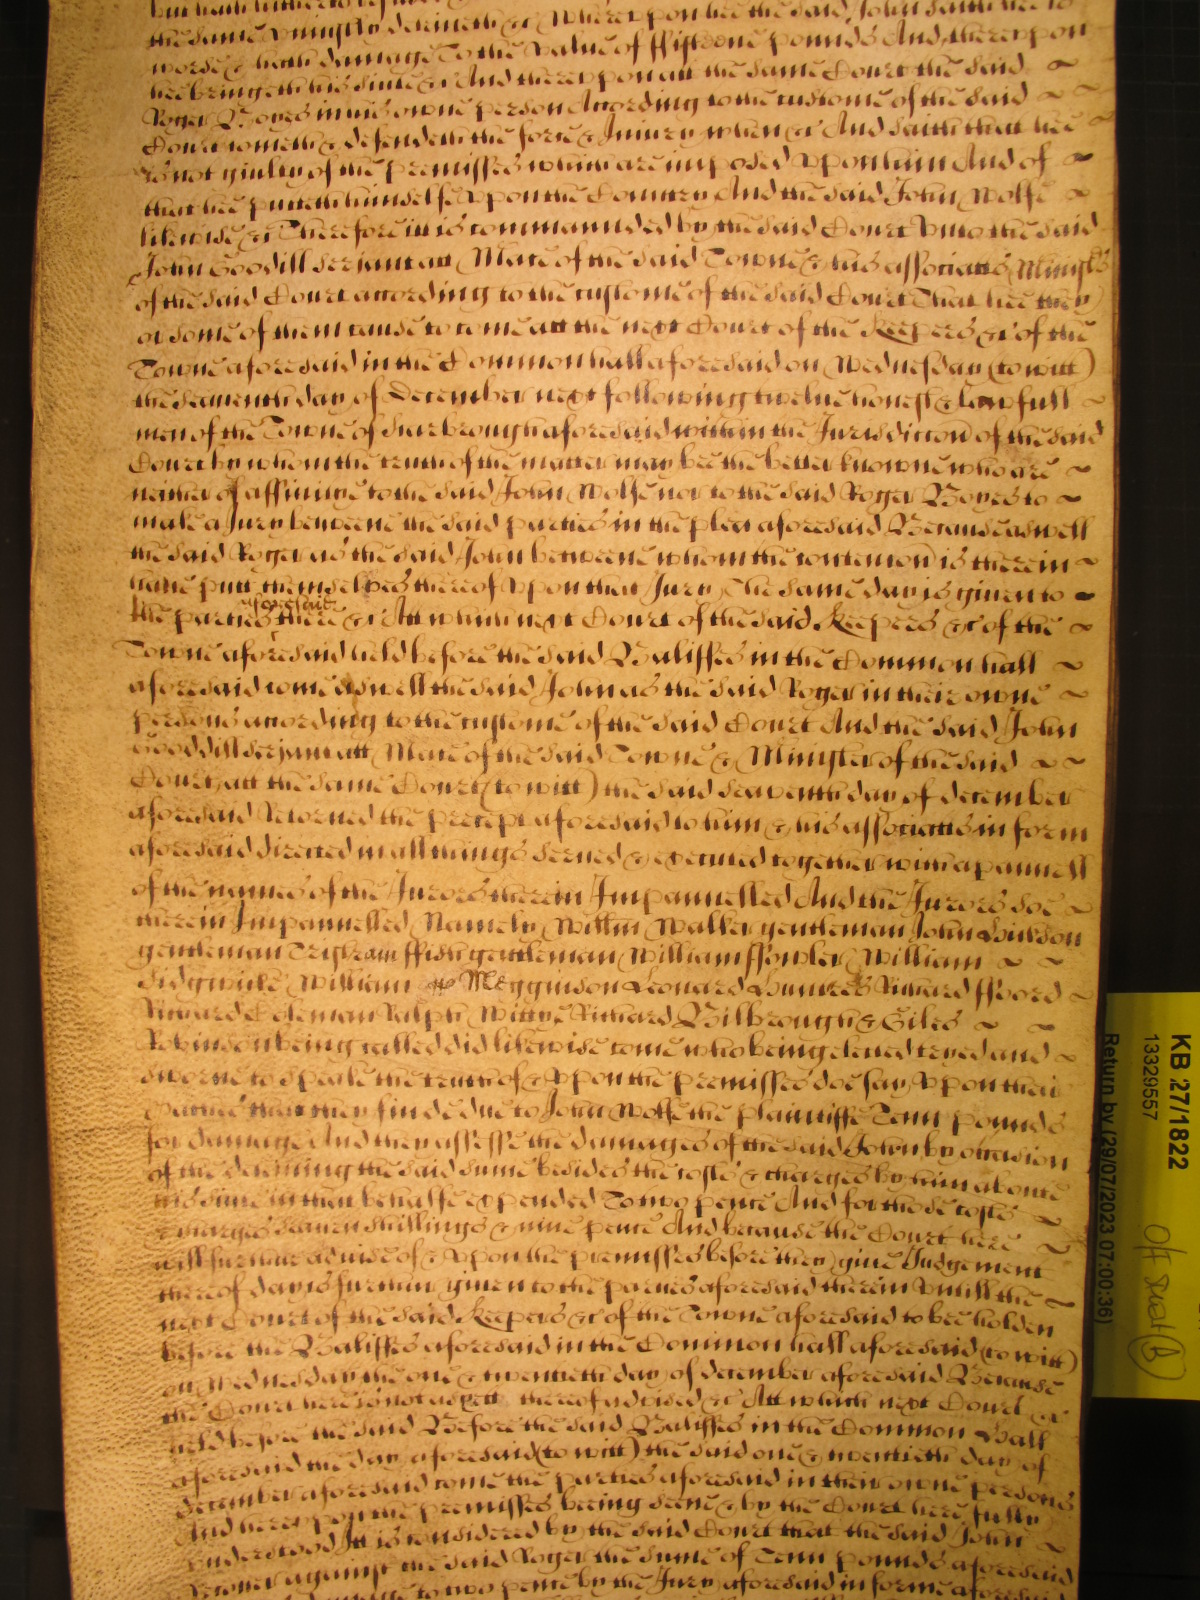 the same Uniustly deteineth &c Whereupon hee the said John saith hee is
worse & hath damage To the Value of ffifteene pounds And thereupon
hee bringeth his suite &c And thereupon att the same Court the said
Roger Boyes in his owne person According to the custome of the said
Court cometh & defendeth the force & Iniury when &c And saith that hee
is not guilty of the premisses which are imposed Upon him And of
that hee putteth himselfe Upon the Country And the said John Wolfe
likewise &c Therefore itt is commaunded by the said Court Unto the said
John Goodill serjeant att Mace of the said Towne & his associates Ministrs
of the said Court according to the custome of the said Court That hee they
or some of them cause to come att the next Court of the Keepers &c of the
Towne aforesaid in the Common hall aforesaid on Wednesday (to witt)
the seaventh day of December next following twelve honest & lawfull
men of the Towne of Scarbrough aforesaid within the Jurisdiccon of the said
Court by whom the truth of the matter may bee the better knowne who are
neither of affinitye to the said John Wolfe nor to the said Roger Boyes to
make a Jury betweene the said parties in the plea aforesaid Because aswell
the said Roger as the said John betweene whom the contencon is therein
have putt themselves thereof Upon that Jury The same day is given to
the parties aforesaid there &c Att which next Court of the said Keepers &c of the
Towne aforesaid held before the said Baliffes in the Common hall
aforesaid come aswell the said John as the said Roger in their owne
persons according to the custome of the said Court And the said John
Gooddill serjeant att Mace of the said Towne & Minister of the said
Court att the same Court (to witt) the said seaventh day of december
aforesaid Retorned the precept aforesaid to him & his associates in form
aforesaid directed in all things served & executed together with a pannell
of the names of the Jurors therein Impannelled And the Jurors soe
therein Impannelled Namely Willm Walker gentleman John
gentleman Tristram ffish gentleman William ffowler William
Sidgwicke William Megginson Leonard Richard ffoord
Richard Coleman Ralph Wittye Richard Bilbrough & Giles
Robinson being called did likewise come who being elected tryed and
sworne to speake the truth of & Upon the premisses doe say Upon their
Oathes that they finde due to John Wolfe the plaintiffe Tenn pounds
for damage And they assesse the damages of the said John by occasion
of the deteining the said sume besides the costs & charges by him aboute
his suite in that behalfe expended To two pence And for those costs
& charges seaven shillings & nine pence And because the Court here
will further advise of & Upon the premisses before they give Judgement
thereof day is further given to the parties aforesaid therein Untill the
next Court of the said Keepers &c of the Towne aforesaid to bee holden
before the Baliffes aforesaid in the Common hall aforesaid (to witt)
on Wednesday the one & twentieth day of december aforesaid Because
the Court here is not as yett thereof advised &c Att which next Court &c
held before the said Before the said Baliffes in the Common Hall
aforesaid the day aforesaid (to witt) the said one & twentieth day of
december aforesaid come the parties aforesaid in their owne persons
And hereupon the premisses being seene & by the Court here fully
understood Itt is considered by the said Court that the said John
Recover against the said Roger the sume of Tenn pounds aforesaid
to two pence by the Jury aforesaid in forme aforesaid
KB 27/1822
13329557
Return by (29/07/2023 07:00:36)